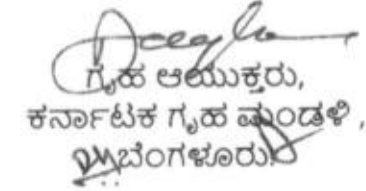 ಗೃಹ ಆಯುಕ್ತರು,
ಕರ್ನಾಟಕ ಗೃಹ ಮಂಡಳಿ,
ಬೆಂಗಳೂರು.